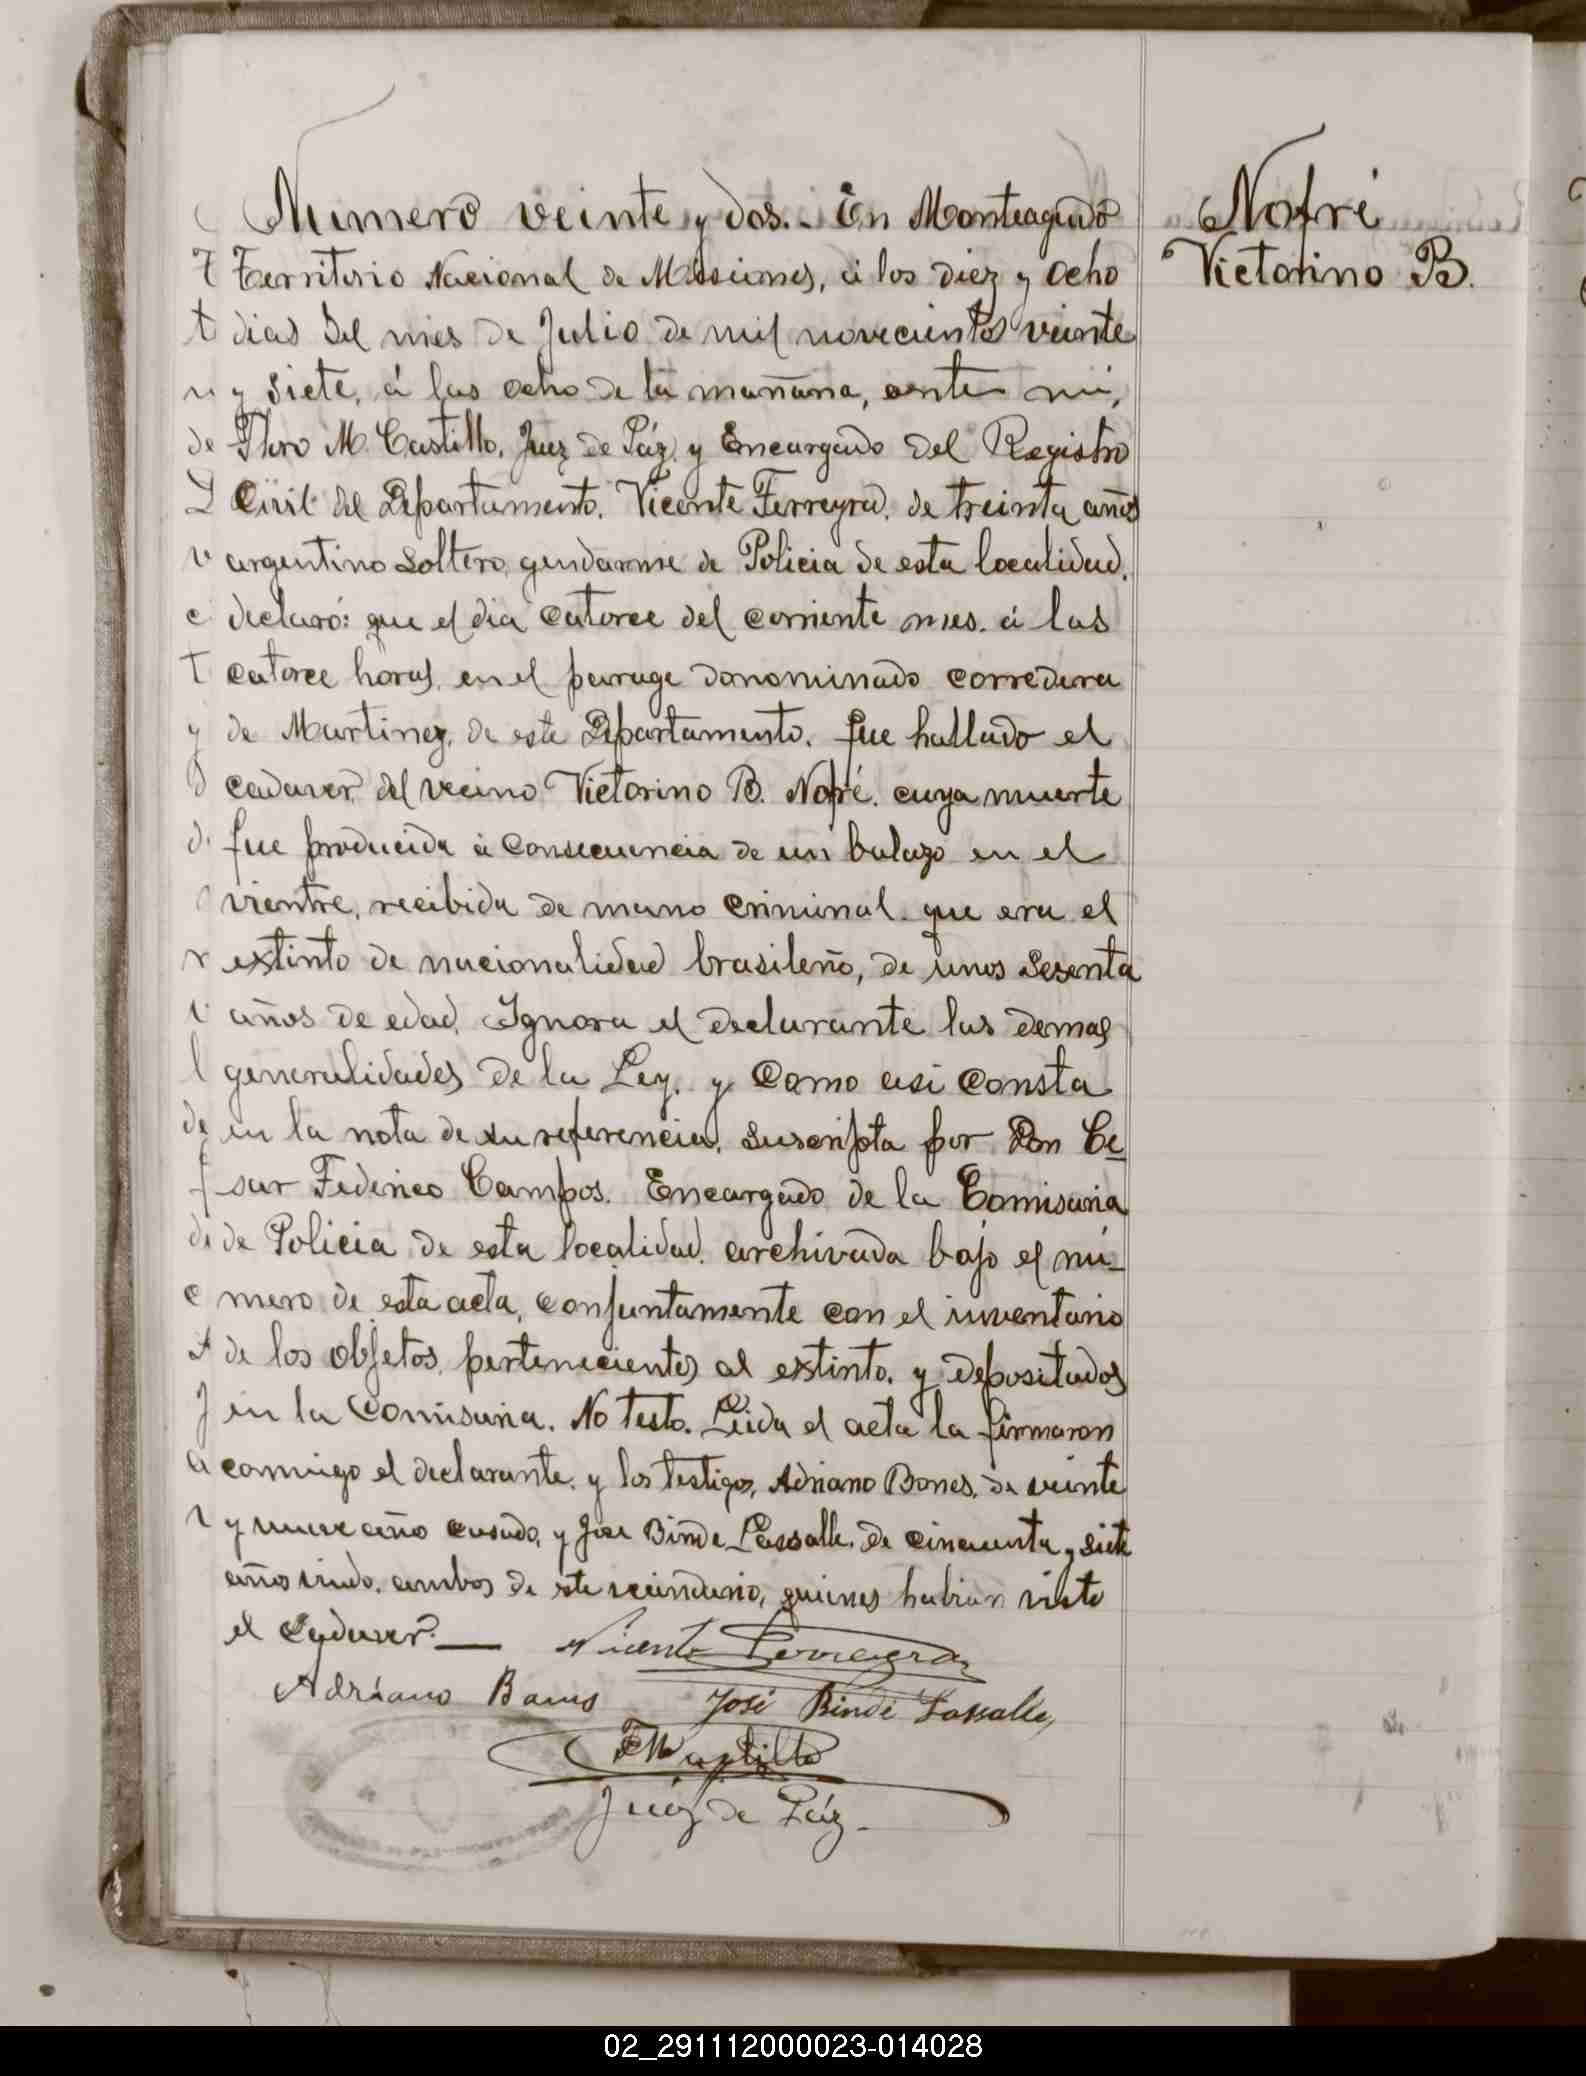 Numero veinte y dos.- En Monteagudo
Territorio Nacional de Missiones, á los diez y ocho
dias del mes de Julio de mil novecientos veinte
y siete, á las ocho de la mañana, ante mi,
M. Castillo, Juez de Páz y Encargado del Registro
Civil del Departamento. Vicente Ferreyra, de treinta años
argentino soltero, gendarme de Policia de esta localidad,
declaró: que el dia catorce del corriente mes, á las
catorce horas, en el parage donominado corredera
de Martinez, de este Departamento, fue hallado el
cadaver del vecino Victorino B. Nofré, cuya muerte
fue producida á consecuencia de un balazo en el
vientre, recibida de mano criminal, que era el
extinto de nacionalidad brasileño, de unos sesenta
años de edad. Ignora el declarante las demas
generalidades de la Ley, y como asi consta
en la nota de su referencia, suscripta por Don Ce-
sar Federico Campos, Encargado de la Comisaria
de Policia de esta localidad, archivada bajo el nú-
mero de esta acta, conjuntamente con el inventario
de los objetos, pertenecientes al extinto, y depositados
en la Comisaria. No testo. Leida el acta la firmaron
conmigo el declarante, y los testigos, Adriano Bones, de veinte
y nueve año casado, y José Binde Lassalle, de cincuenta y siete
años viudo, ambos de este vecindario, quienes habian visto
el cadaver.—
Vicente Ferreyra
Adriano Bones José Binde Lassalle
Castillo
Juéz de Páz.-
Nofré
Victorino B.
02_291112000023-014028